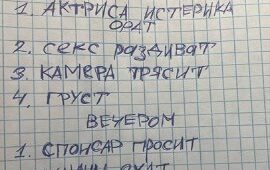 1. АКТРИСА ИСТЕРИКА
ОРАТ
2. СЕКС РАЗДИВАТ
3. КАМЕРА ТРЯСИТ
4. ГРУСТ
ВЕЧЕРОМ
1. СПОНСАР ПРОСИТ